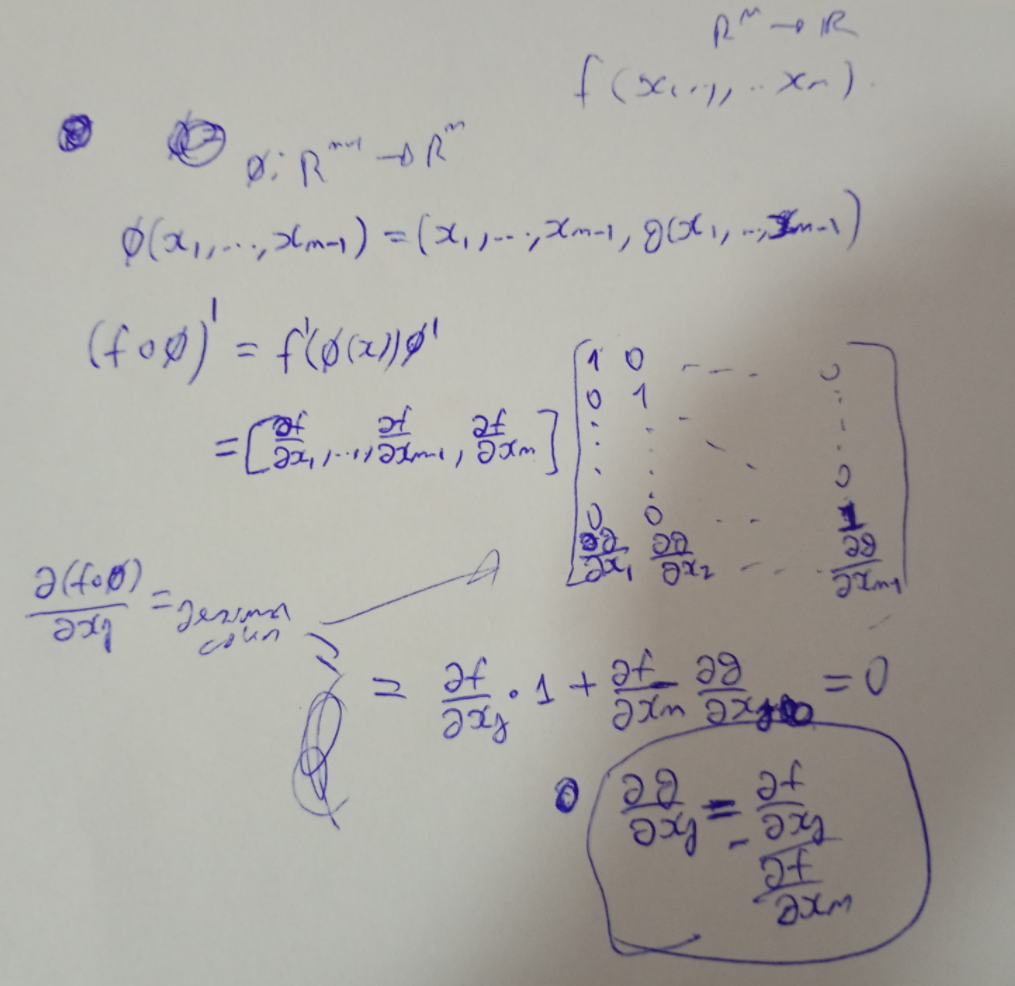 R^m → R
f(x_1, ..., x_m).
ø: R^{m-1} → R^m
ø(x_1, ..., x_{m-1}) = (x_1, ..., x_{m-1}, g(x_1, ..., x_{m-1})
(f o ø)' = f'(ø(x))ø'
= [∂f/∂x_1, ..., ∂f/∂x_{m-1}, ∂f/∂x_m] [1 0 --- 0
0 1 :
: . .
. : 0
0 0 -- 1
∂g/∂x_1 ∂g/∂x_2 --- ∂g/∂x_{m-1}]
∂(f o ø)/∂x_j =
= ∂f/∂x_j · 1 + ∂f/∂x_m ∂g/∂x_j = 0
∂g/∂x_j = - (∂f/∂x_j)/(∂f/∂x_m)